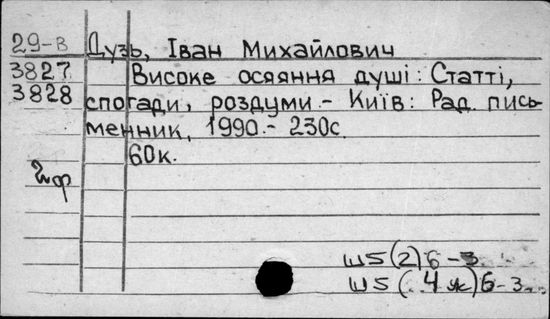 29-В Дузь, Іван Михайлович
3827 Високе осяяння душі: Статті,
3828 спогади, роздуми. - Київ: Рад. пись-
менник, 1990. - 230с.
60к.
Ш5(2)6-3
Ш5( 4 )6-3